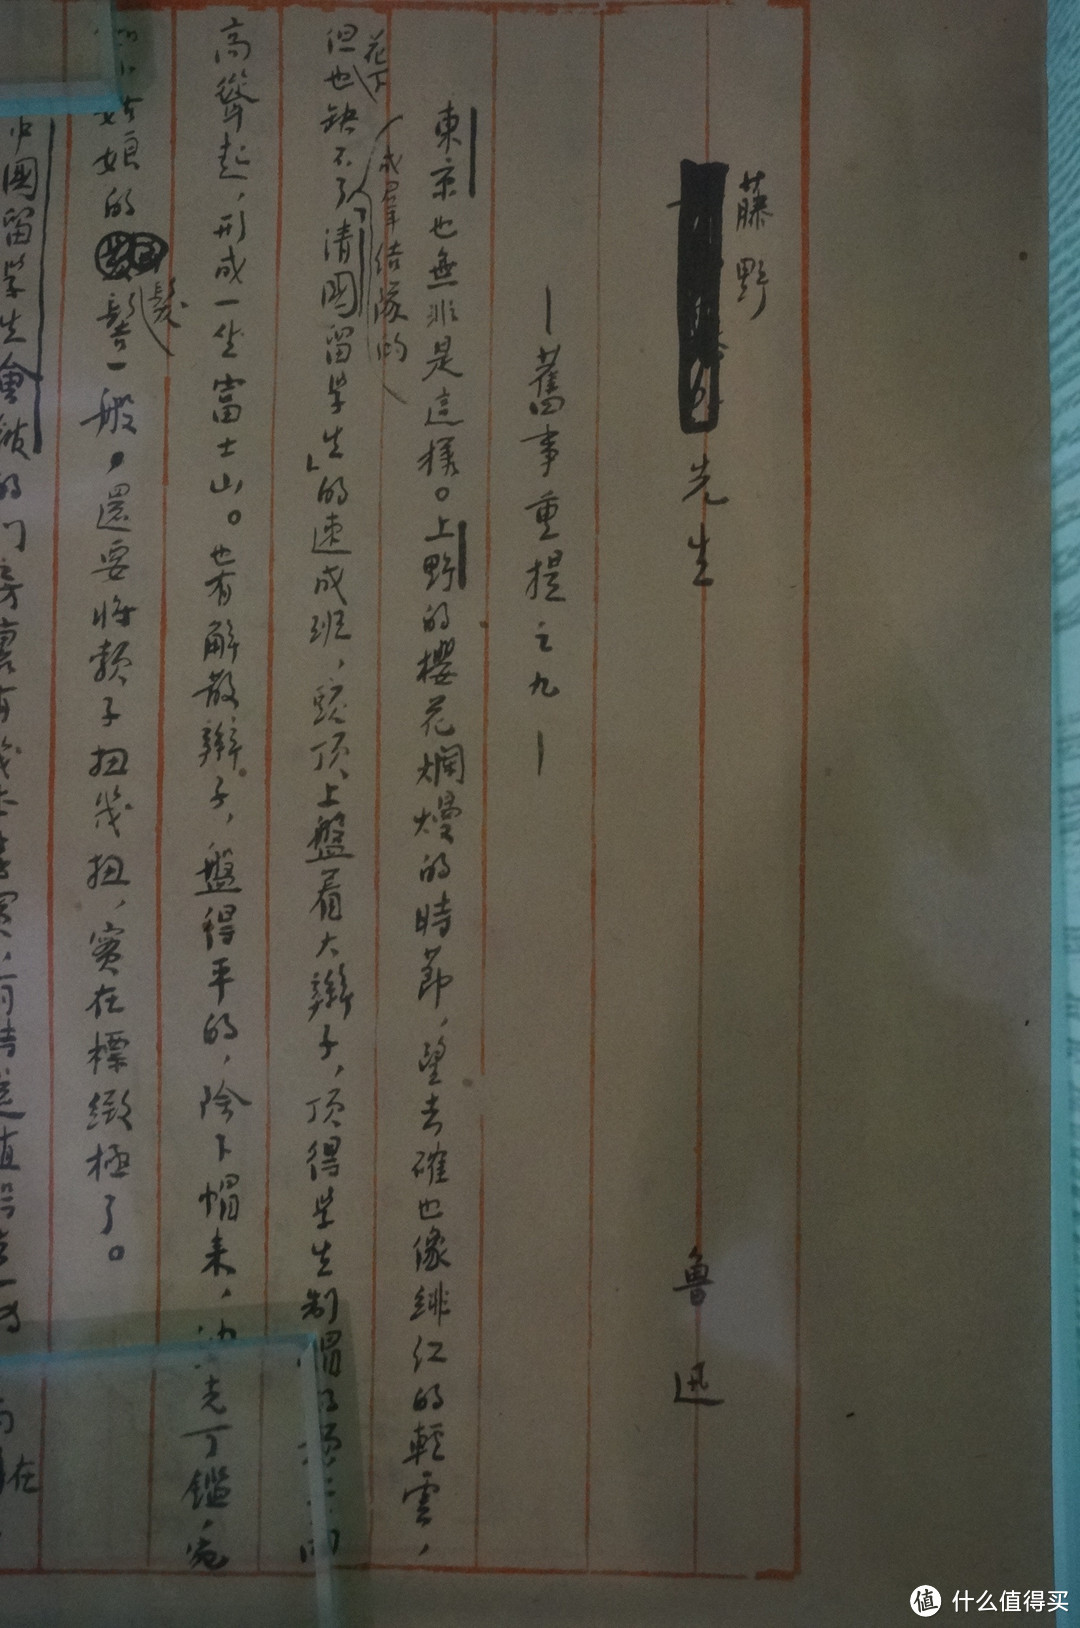 藤野先生
魯迅
——舊事重提之九——
東京也無非是這樣。上野的櫻花爛熳的時節，望去確也像緋紅的輕雲，
但花下也缺不了成羣結隊的「清國留學生」的速成班，頭頂上盤着大辮子，頂得學生制帽的頂上
高聳起，形成一坐富士山。也有解散辮子，盤得平的，除下帽來，油光可鑑，宛
姑娘的髮髻一般，還要將頸子扭幾扭，實在標緻極了。
中國留學生會館的門房裏有幾本書買，有時還值得去一
什么值得买